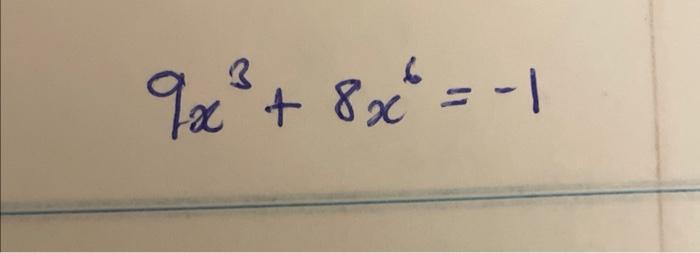 9x³ + 8x⁶ = -1